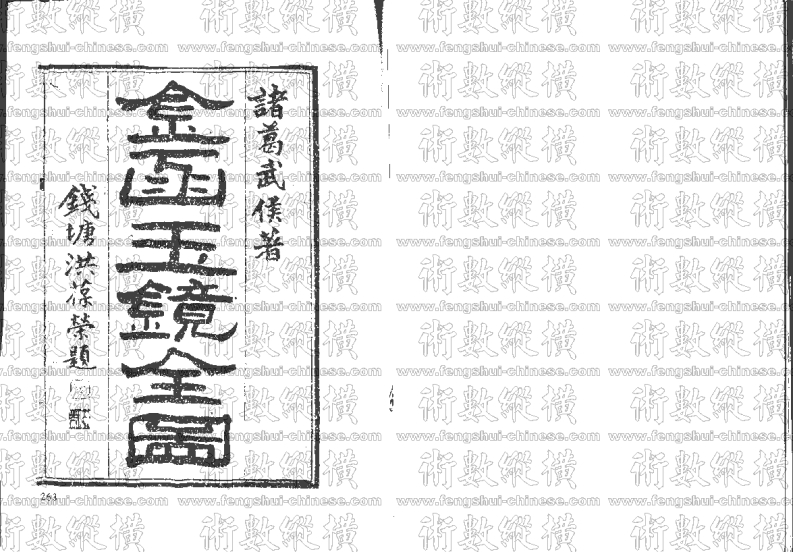 諸葛武侯著
金函玉鏡全圖
錢塘洪葆榮題
263
術數縱橫
www.fengshui-chinese.com